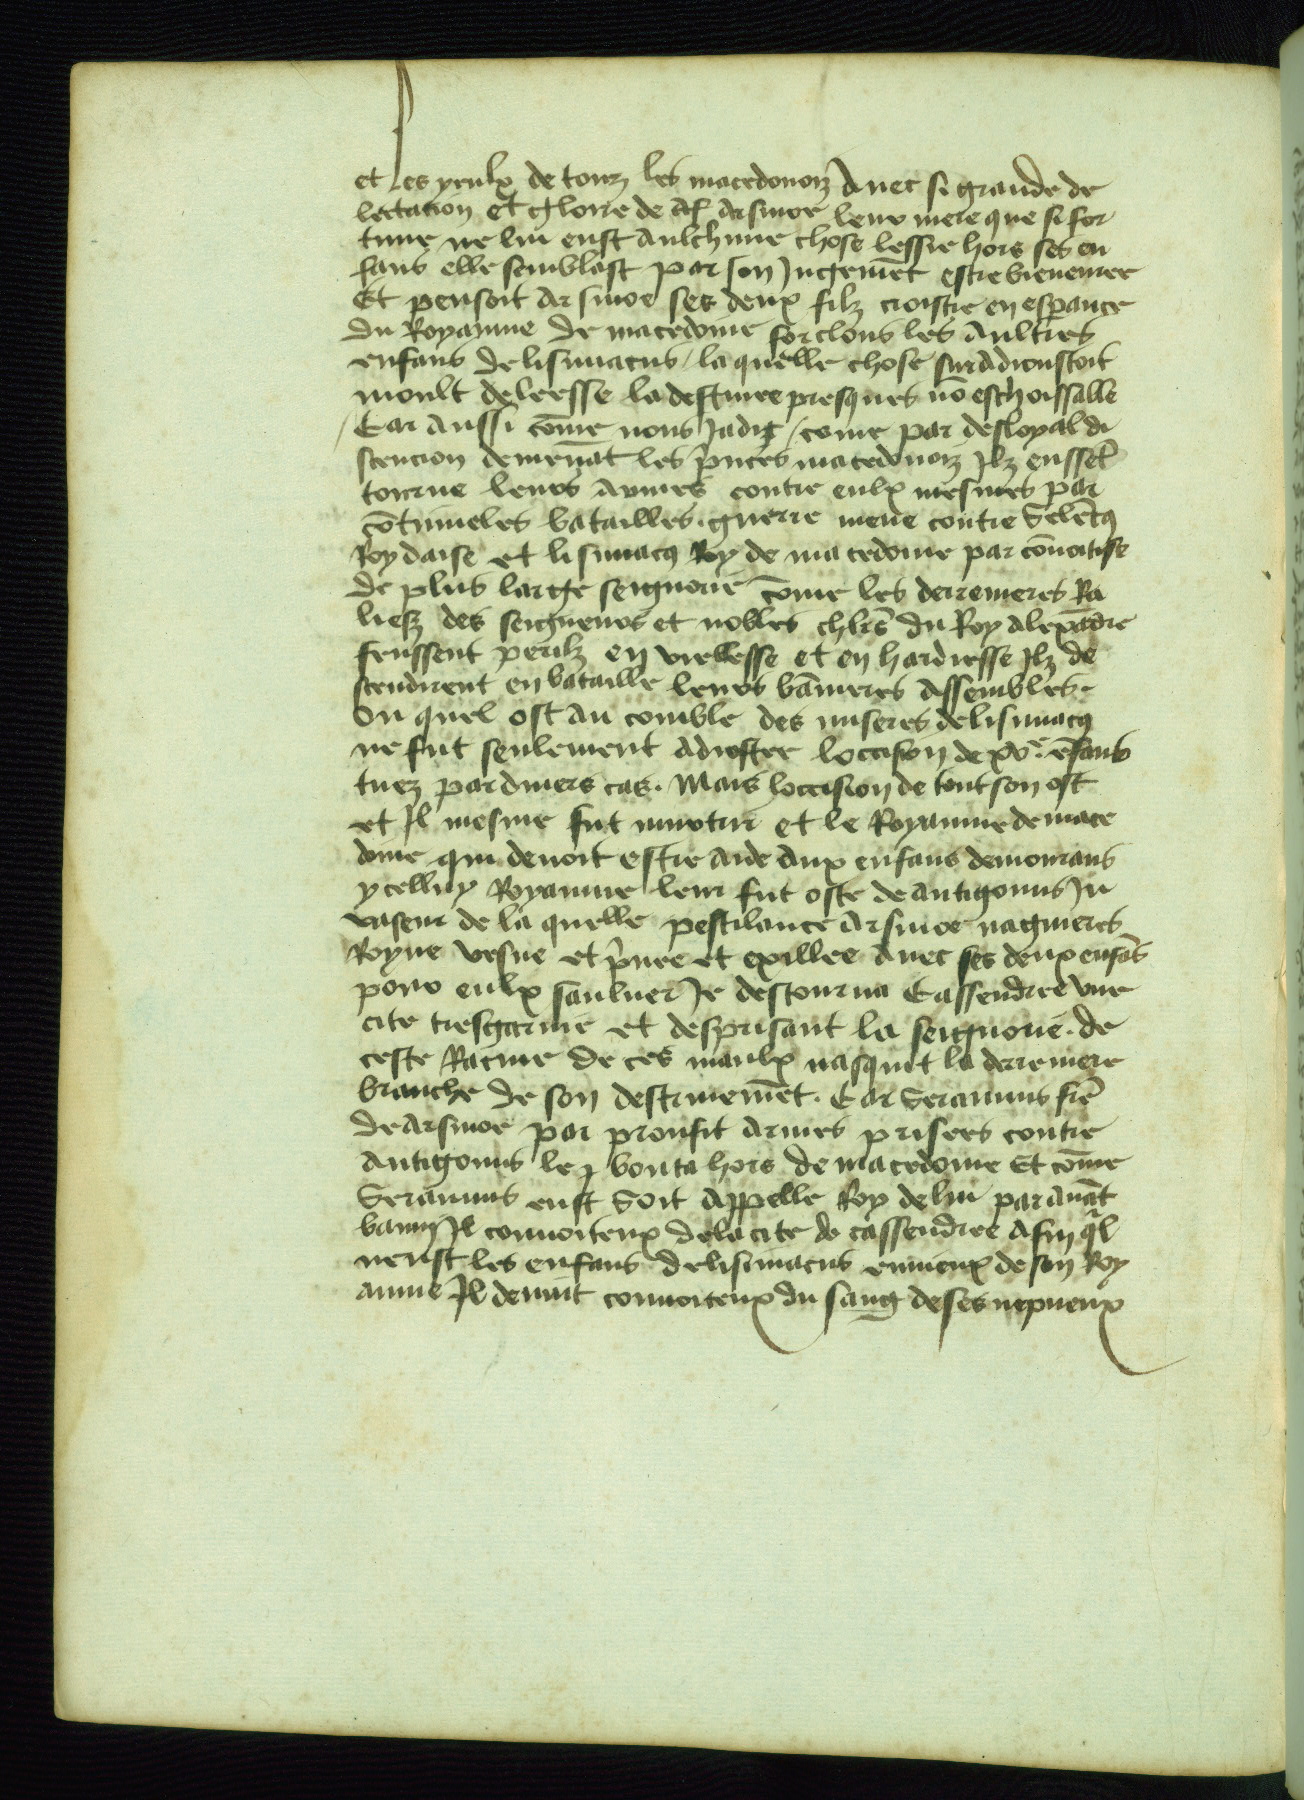 et les yeulx de touz les macedonoiz Auec si grande de
lectacion et gloire de Arsinoe leur mere que si for
tune ne lui eust aulchune chose lessie hors ses en
fans elle semblast par son Jugemēt estre bieneuree
Et pensoit Arsinoe ses deux filz croistre en esperance
du Royaume de macedoine forclous les aultres
enfans de lisimacus / la quelle chose suradioustoit
moult de leesse la destinee presques nō eschoissable
/ Car aussi cōme nous Jadiz / come par desloyal di
scencion demenāt les prīces macedonoiz Ilz eussēt
tourne leurs armes contre eulx mesmes par
cōtinueles batailles. guerre meue contre Seleucꝰ
Roy daise et lisimacꝰ Roy de macedoine par cōuoitise
de plus large seignorie cōme les derrenieres Ra
liesz des seigneurs et nobles chlrs̄ du Roy alexādre
feussent perilz en viellesse et en hardiesse Ilz de
scendirent en bataille leurs bānieres assemblees.
Ou quel ost au comble des miseres de lisimacꝰ
ne fut seulement adiostee loccison de xv.e ēfans
tuez par diuers cas. Mais loccision de tout son ost
et Il mesme fut murtri et le Royaume de mace
doine qui deuoit estre aide aux enfans demourans
ycelluy Royaume leur fut oste de antigonus In
vaseur de la quelle pestilance Arsinoe nagueres
Royne vesue et pr̄uee et exillee auec ses deux enfās
pour eulx sauluer se destourna Cassendree vne
cite tresgarnie et desprisant la seignorie. de
ceste Racine de ces maulx nasquit la derreniere
branche de son destruiemēt. Car Seraunus frē
de Arsinoe par proufit armes prises contre
Antigonus le bouta hors de macedoine Et cōme
Seraunus eust Soit appelle Roy de lui parauāt
banny Il conuoiteux de la cite de cassendree Afin ql̄
neust les enfans de lisimacus enuieux de son Roy
aume Il deuint conuoiteux du sang de ses nepueux